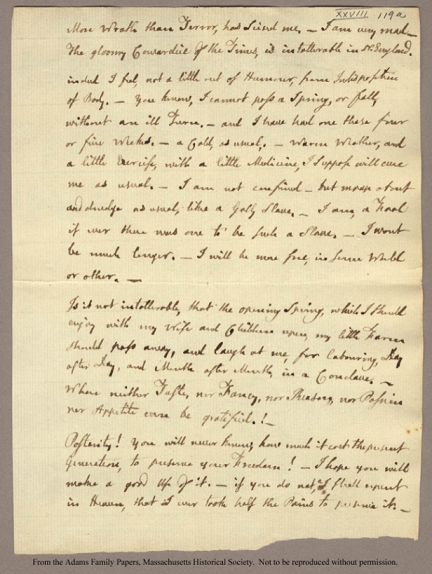 XXVIII 119a
More Wrath than Terror, has seized me. — I am very mad. —
The gloomy Cowardice of the Times, is intollerable in N. England.
indeed I feel, not a little out of Humour, from Indisposition
of Body. — You know, I cannot pass a Spring, or fall,
without an ill Turn. — and I have had one these four
or five Weeks. — a Cold, as usual. — Warm Weather, and
a little Exercise, with a little Medicine, I suppose will cure
me as usual. — I am not confined — but moap about
and drudge as usual, like a Gally Slave. — I am a Fool
if ever there was one to be such a Slave. — I wont
be much longer. — I will be more free, in some World
or other. —
Is it not intollerable, that the opening Spring, which I should
enjoy with my Wife and Children upon my little Farm
should pass away, and laugh at me, for labouring, Day
after Day, and Month after Month, in a Conclave, —
Where neither Taste, nor Fancy, nor Reason, nor Passion
nor Appetite can be gratified.! —
Posterity! You will never know, how much it cost the present
Generation, to preserve your Freedom! — I hope you will
make a good Use of it. — if you do not, I shall repent
in Heaven, that I ever took half the Pains to preserve it. —
From the Adams Family Papers, Massachusetts Historical Society. Not to be reproduced without permission.